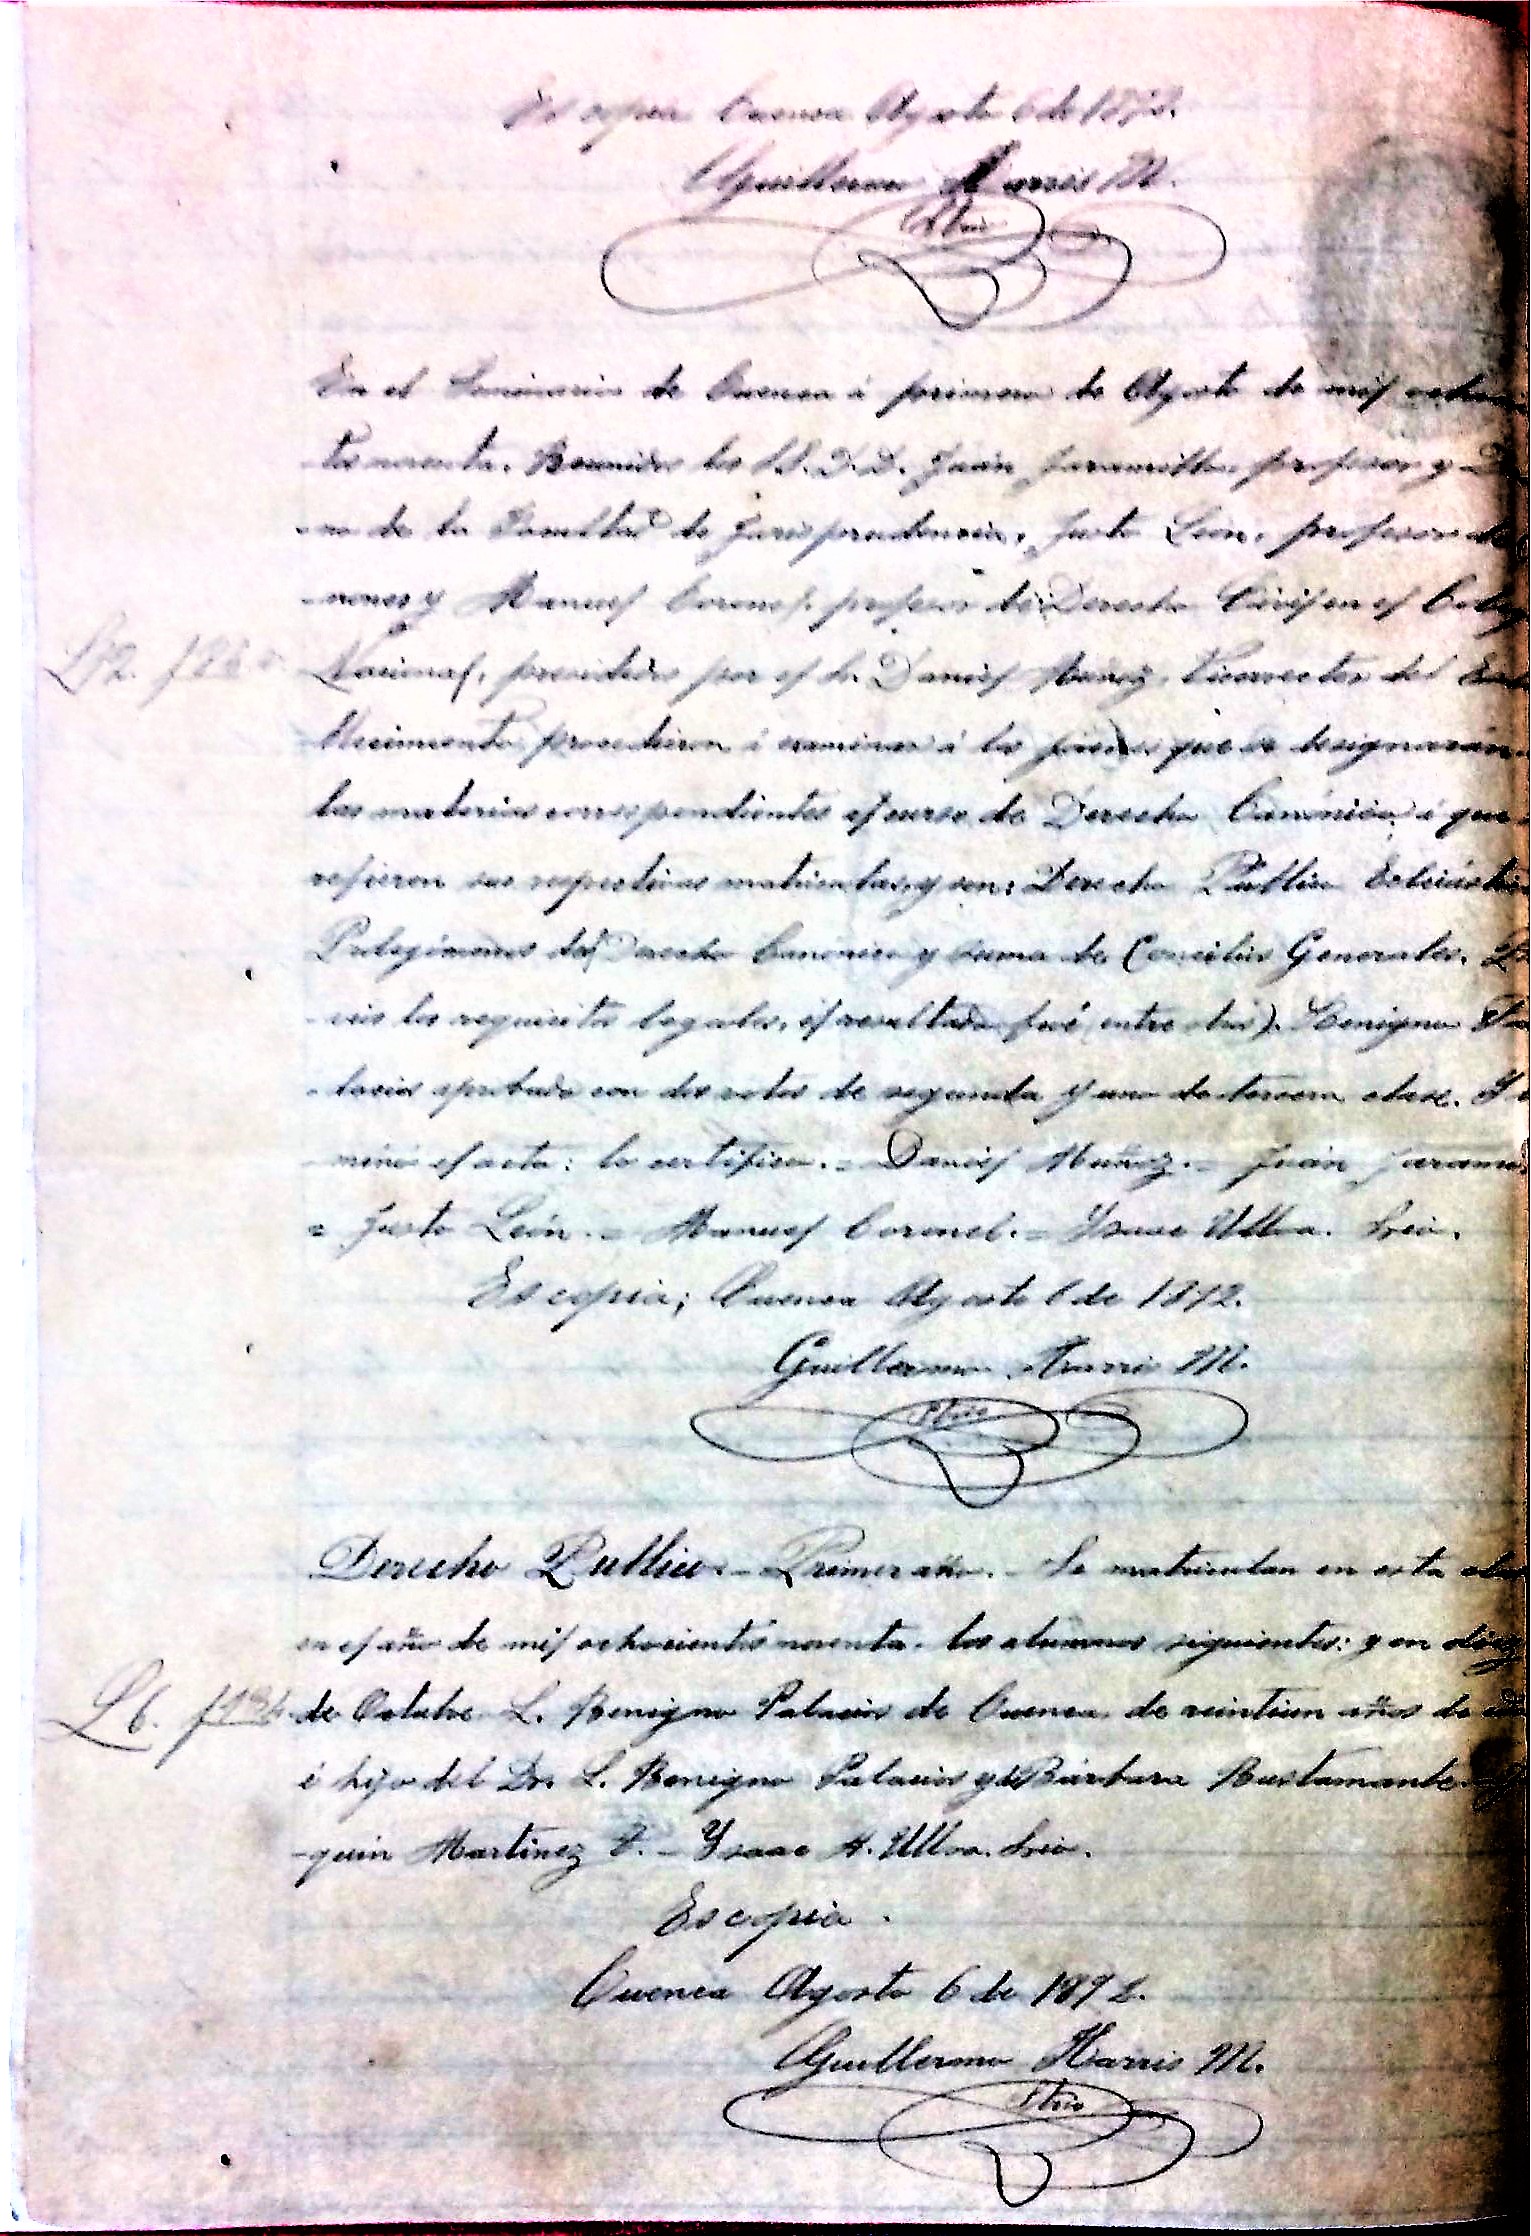 Es copia Cuenca Agosto 6 de 1892.
Guillermo Harris M.
Strio
En el Seminario de Cuenca á primero de Agosto de mil ochocien
tos noventa. Reunidos los SS.D.D. Juan Jaramillo, profesor y De
-no de la Facultad de Jurisprudencia, Justo León, profesor de
-nones y Manuel Coronel profesor de Derecho Civil en el Coleg
L 2.
Nacional, presididos por el Sr. Daniel Muñoz, Vicerrector del Esta
blecimiento procedieron á examinar á los jóvenes que se designarán
las materias correspondientes al curso de Derecho Canónico á que
refieren sus respectivas matrículas, y son: Derecho Público Eclesiástico
Prolegómenos del Derecho Canónico y suma de Concilios Generales. Pre
-vios los requisitos legales, el resultado fué (entre otros). Benigno Pa
-lacios aprobado con dos votos de segunda y uno de tercera clase. Y
-minó el acta: lo certifico. = Daniel Muñoz. = Juan Jarami
= Justo León. = Manuel Coronel. = Ysaac Ulloa. Srio.
Es copia; Cuenca Agosto 6 de 1892.
Guillermo Harris M.
Strio
Derecho Público. - Primer año. - Se matriculan en esta clase
en el año de mil ochocientos noventa. los alumnos siguientes: y en diez
L 6.
de Octubre L. Benigno Palacios de Cuenca, de veintiun años de
é hijo del Dr. L. Benigno Palacios y de Bárbara Bustamante
-quín Martínez T. - Ysaac A. Ulloa. Srio.
Es copia.
Cuenca Agosto 6 de 1892.
Guillermo Harris M.
Strio